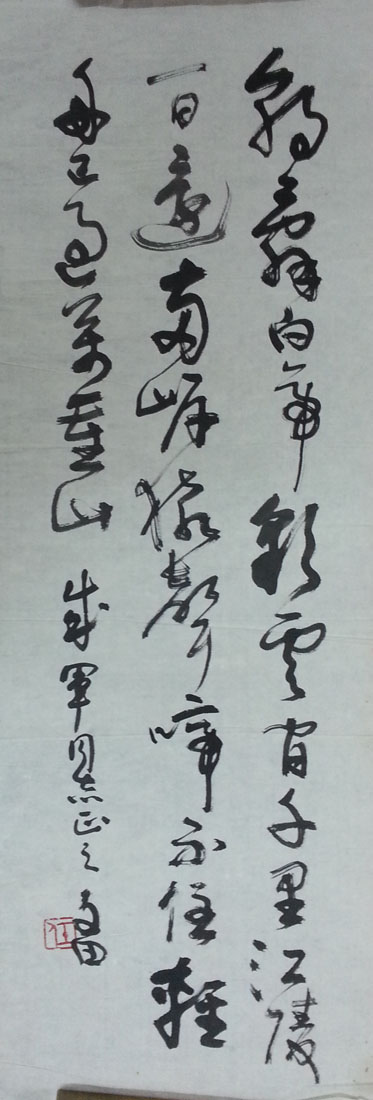 朝辞白帝彩云间千里江陵
一日还两岸猿声啼不住轻
舟已过万重山 成军同志正之